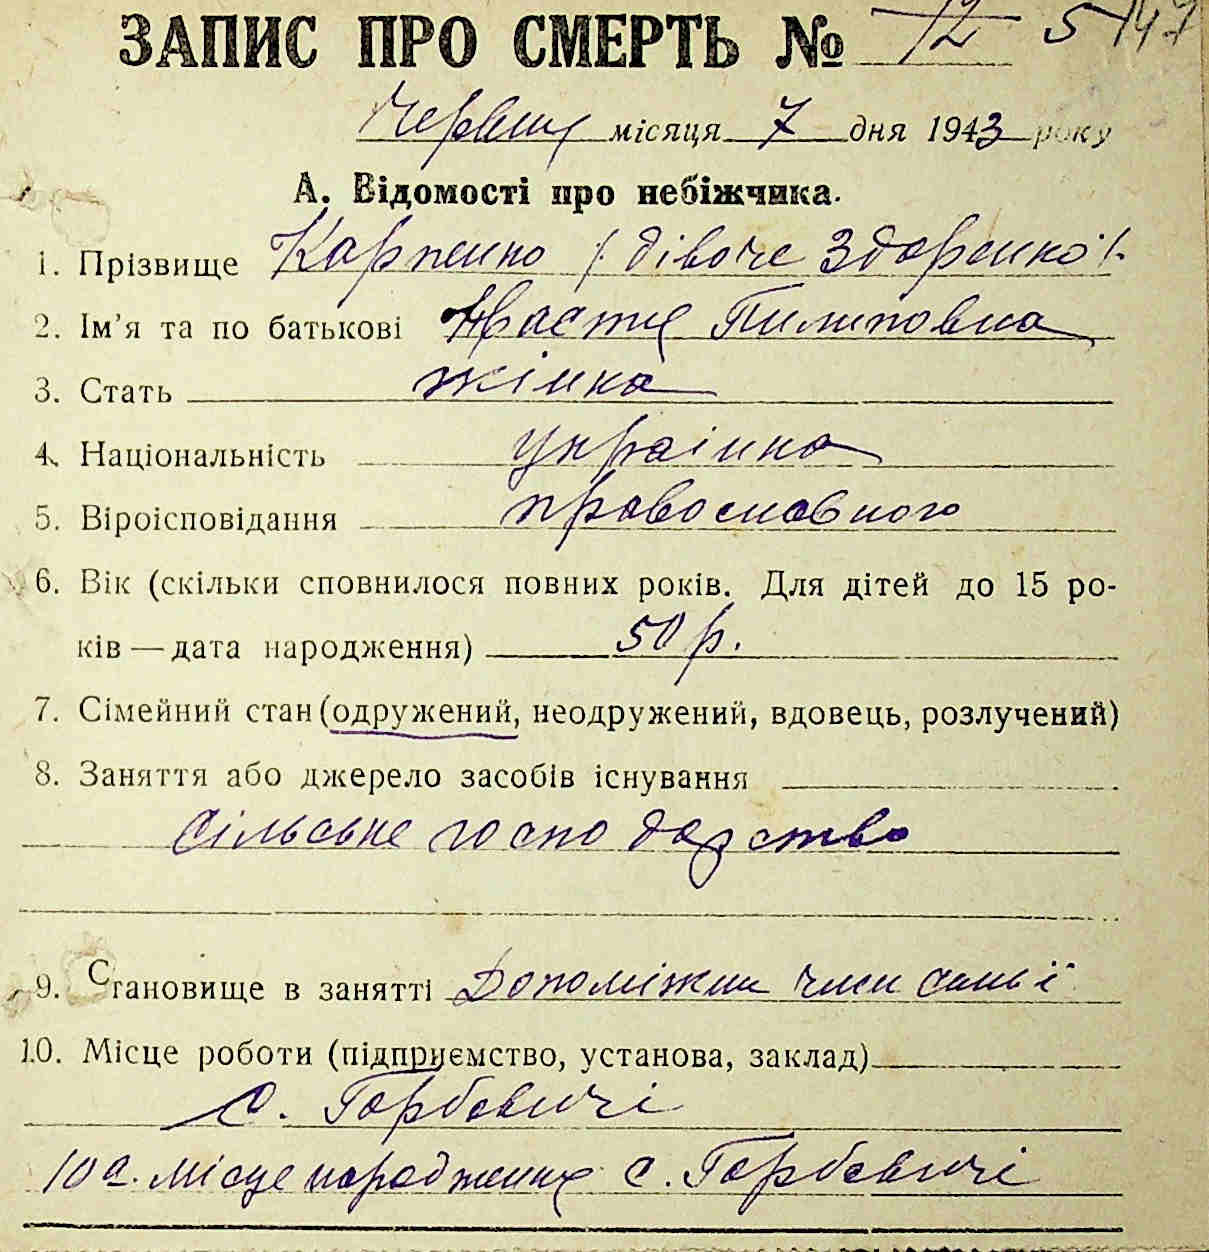 ЗАПИС ПРО СМЕРТЬ № 12 5 147
Червня місяця 7 дня 1943 року
А. Відомості про небіжчика.
1. Прізвище Карпенко /дівоче Здоренко/.
2. Ім'я та по батькові Настя Пилиповна
3. Стать жінка
4. Національність українка
5. Віроісповідання православного
6. Вік (скільки сповнилося повних років. Для дітей до 15 ро-
ків — дата народження) 50 р.
7. Сімейний стан (одружений, неодружений, вдовець, розлучений)
8. Заняття або джерело засобів існування
сільське господарство
9. Становище в занятті Допоміжни член симьї
10. Місце роботи (підприємство, установа, заклад)
с. Горбовичі
10а. місце народження с. Горбовичі